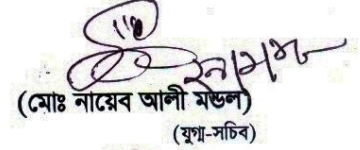 (মোঃ নায়েব আলী মন্ডল)
(যুগ্ম-সচিব)